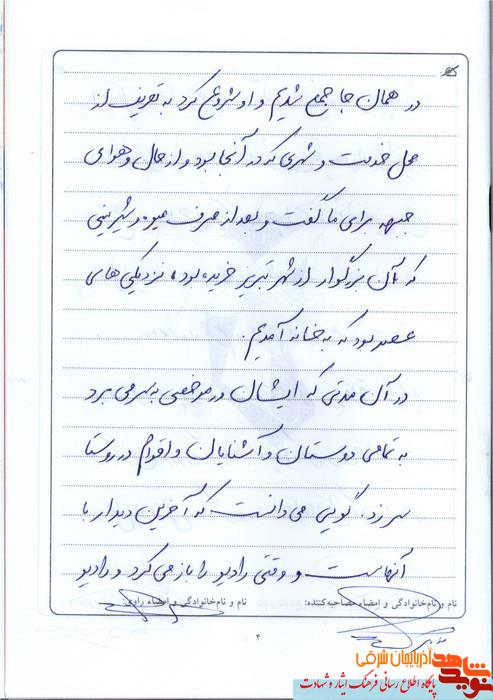 در همان جا جمع شدیم و او شروع کرد به تعریف از
محل خدمت و شهری که در آنجا بود و از حال و هوای
جبهه برای ما گفت و بعد از صرف میوه و شیرینی
که آن بزرگوار از شهر تبریز خریده بود، نزدیکی های
عصر بود که به خانه آمدیم.
در آن مدتی که ایشان در مرخصی به سر می برد
به تمامی دوستان و آشنایان و اقوام در روستا
سر زد. گویی می دانست که آخرین دیدار با
آنهاست و وقتی رادیو را باز می کرد و رادیو
نام و نام‌خانوادگی و امضاء مصاحبه‌کننده:
نام و نام‌خانوادگی و امضاء راوی:
۴
نوید شاهد آذربایجان شرقی
پایگاه اطلاع رسانی فرهنگ ایثار و شهادت